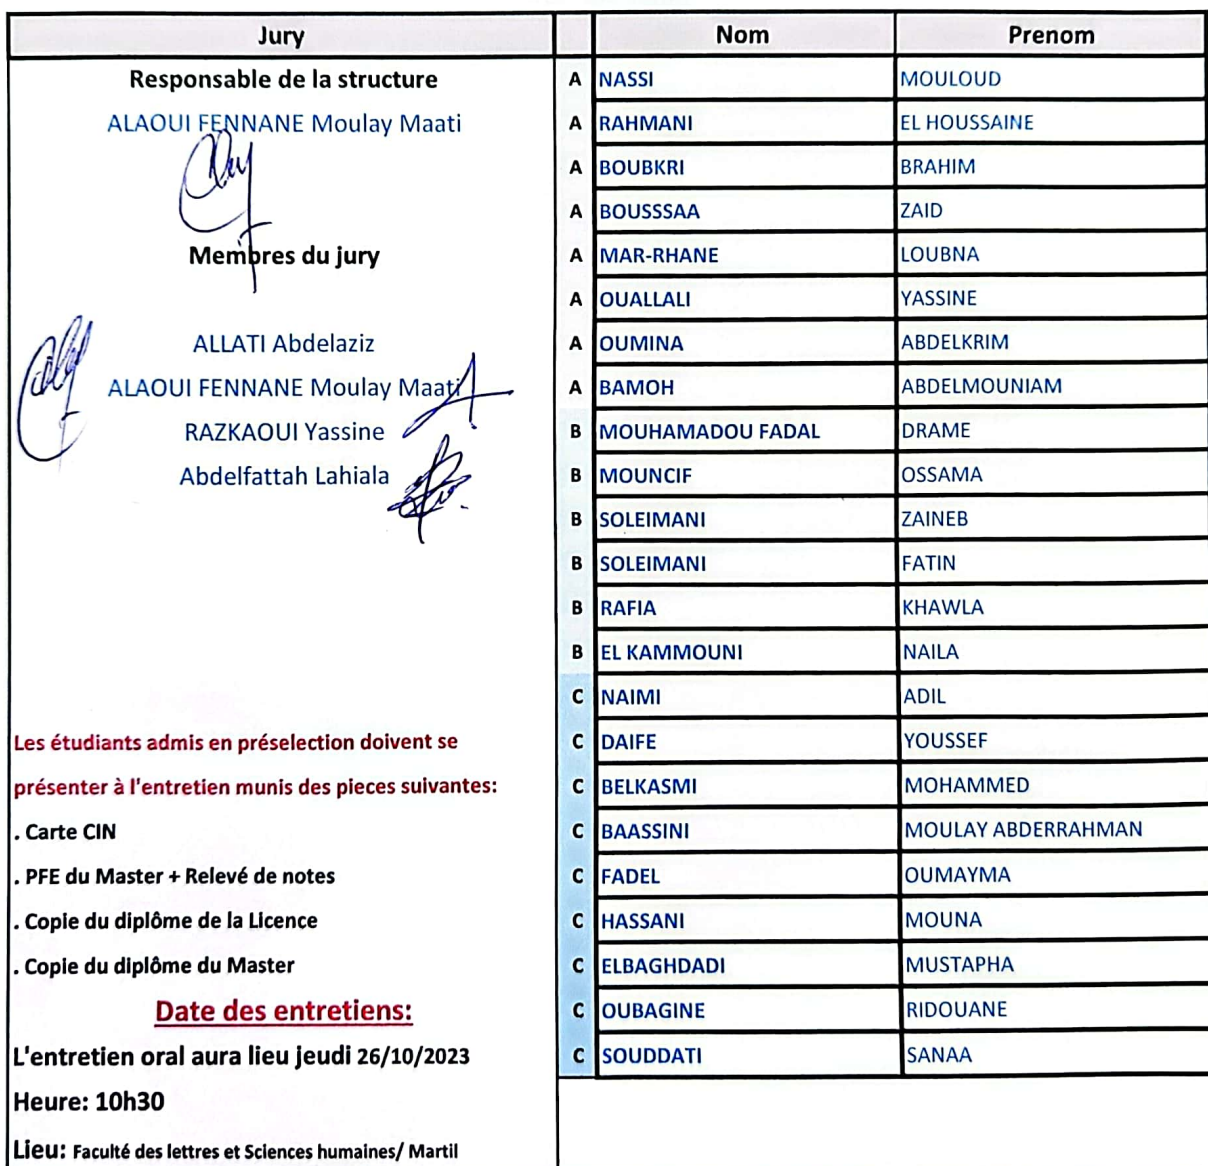 Jury
Responsable de la structure
ALAOUI FENNANE Moulay Maati
Membres du jury
ALLATI Abdelaziz
ALAOUI FENNANE Moulay Maati
RAZKAOUI Yassine
Abdelfattah Lahiala
Les étudiants admis en préselection doivent se
présenter à l'entretien munis des pieces suivantes:
. Carte CIN
. PFE du Master + Relevé de notes
. Copie du diplôme de la Licence
. Copie du diplôme du Master
Date des entretiens:
L'entretien oral aura lieu jeudi 26/10/2023
Heure: 10h30
Lieu: Faculté des lettres et Sciences humaines/ Martil
Nom Prenom
A NASSI MOULOUD
A RAHMANI EL HOUSSAINE
A BOUBKRI BRAHIM
A BOUSSSAA ZAID
A MAR-RHANE LOUBNA
A OUALLALI YASSINE
A OUMINA ABDELKRIM
A BAMOH ABDELMOUNIAM
B MOUHAMADOU FADAL DRAME
B MOUNCIF OSSAMA
B SOLEIMANI ZAINEB
B SOLEIMANI FATIN
B RAFIA KHAWLA
B EL KAMMOUNI NAILA
C NAIMI ADIL
C DAIFE YOUSSEF
C BELKASMI MOHAMMED
C BAASSINI MOULAY ABDERRAHMAN
C FADEL OUMAYMA
C HASSANI MOUNA
C ELBAGHDADI MUSTAPHA
C OUBAGINE RIDOUANE
C SOUDDATI SANAA